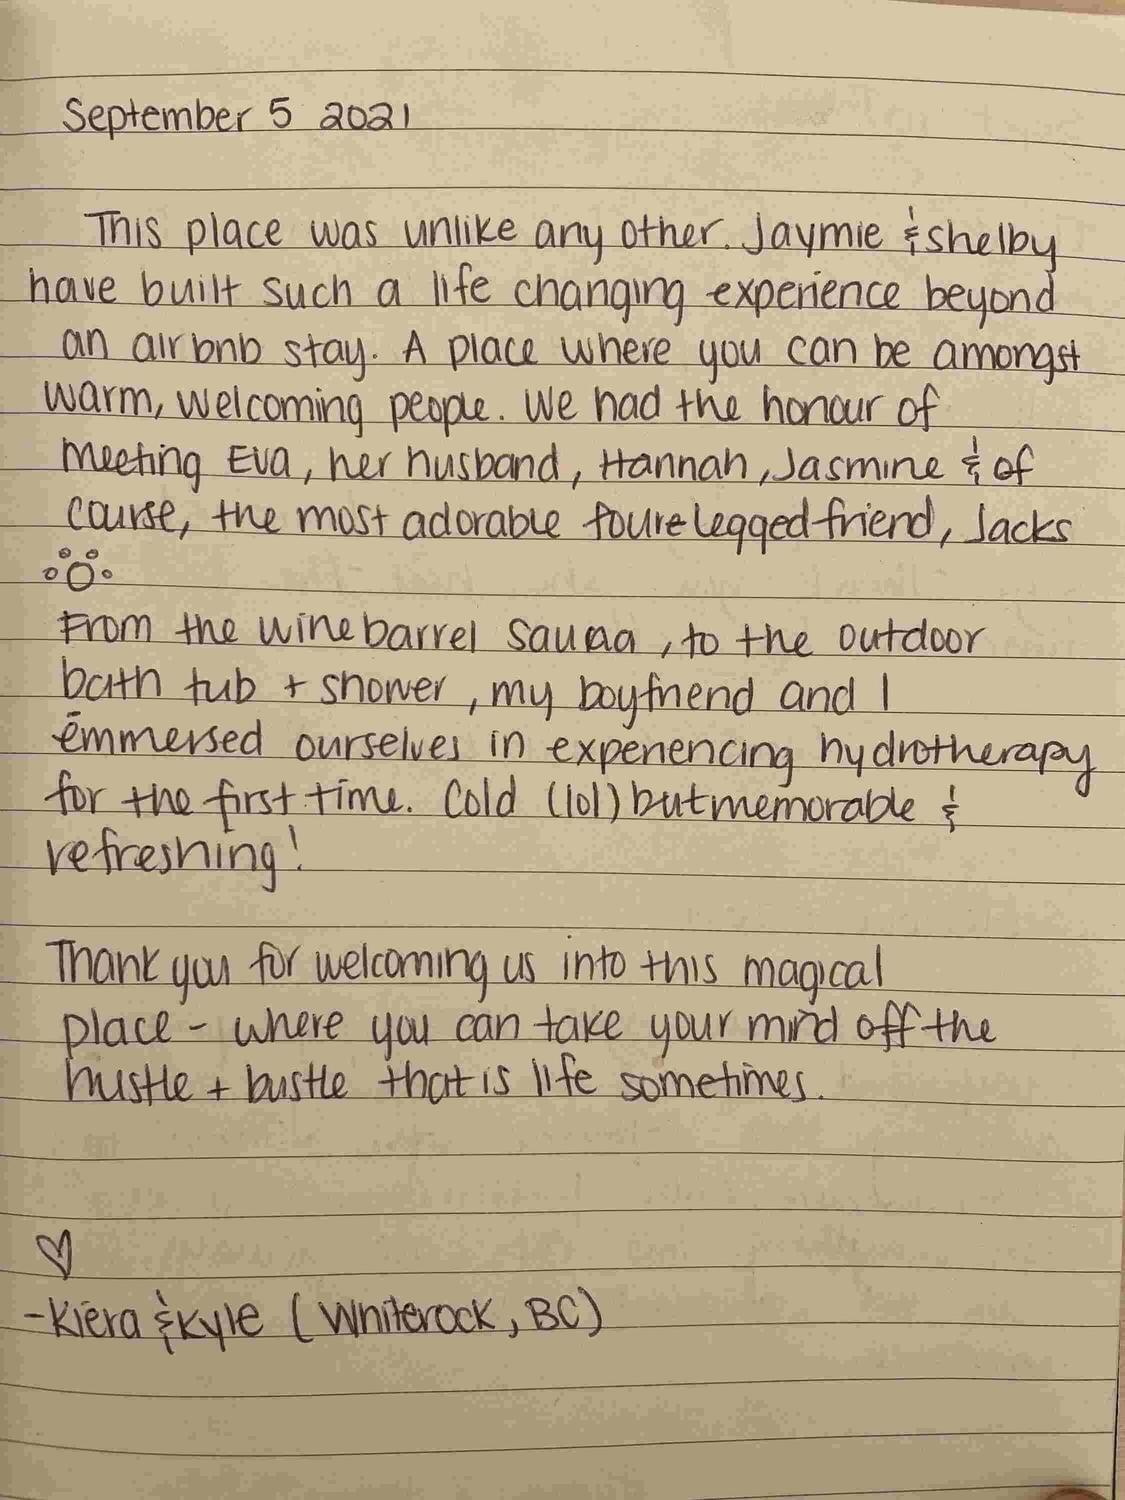 September 5 2021
This place was unlike any other. Jaymie & Shelby
have built such a life changing experience beyond
an airbnb stay. A place where you can be amongst
warm, welcoming people. We had the honour of
meeting Eva, her husband, Hannah, Jasmine & of
course, the most adorable foure legged friend, Jacks
From the wine barrel sauna, to the outdoor
bath tub + shower, my boyfriend and I
emmersed ourselves in experiencing hydrotherapy
for the first time. Cold (lol) but memorable &
refreshing!
Thank you for welcoming us into this magical
place - where you can take your mind off the
hustle + bustle that is life sometimes.
♡
- Kiera & Kyle (Whiterock, BC)